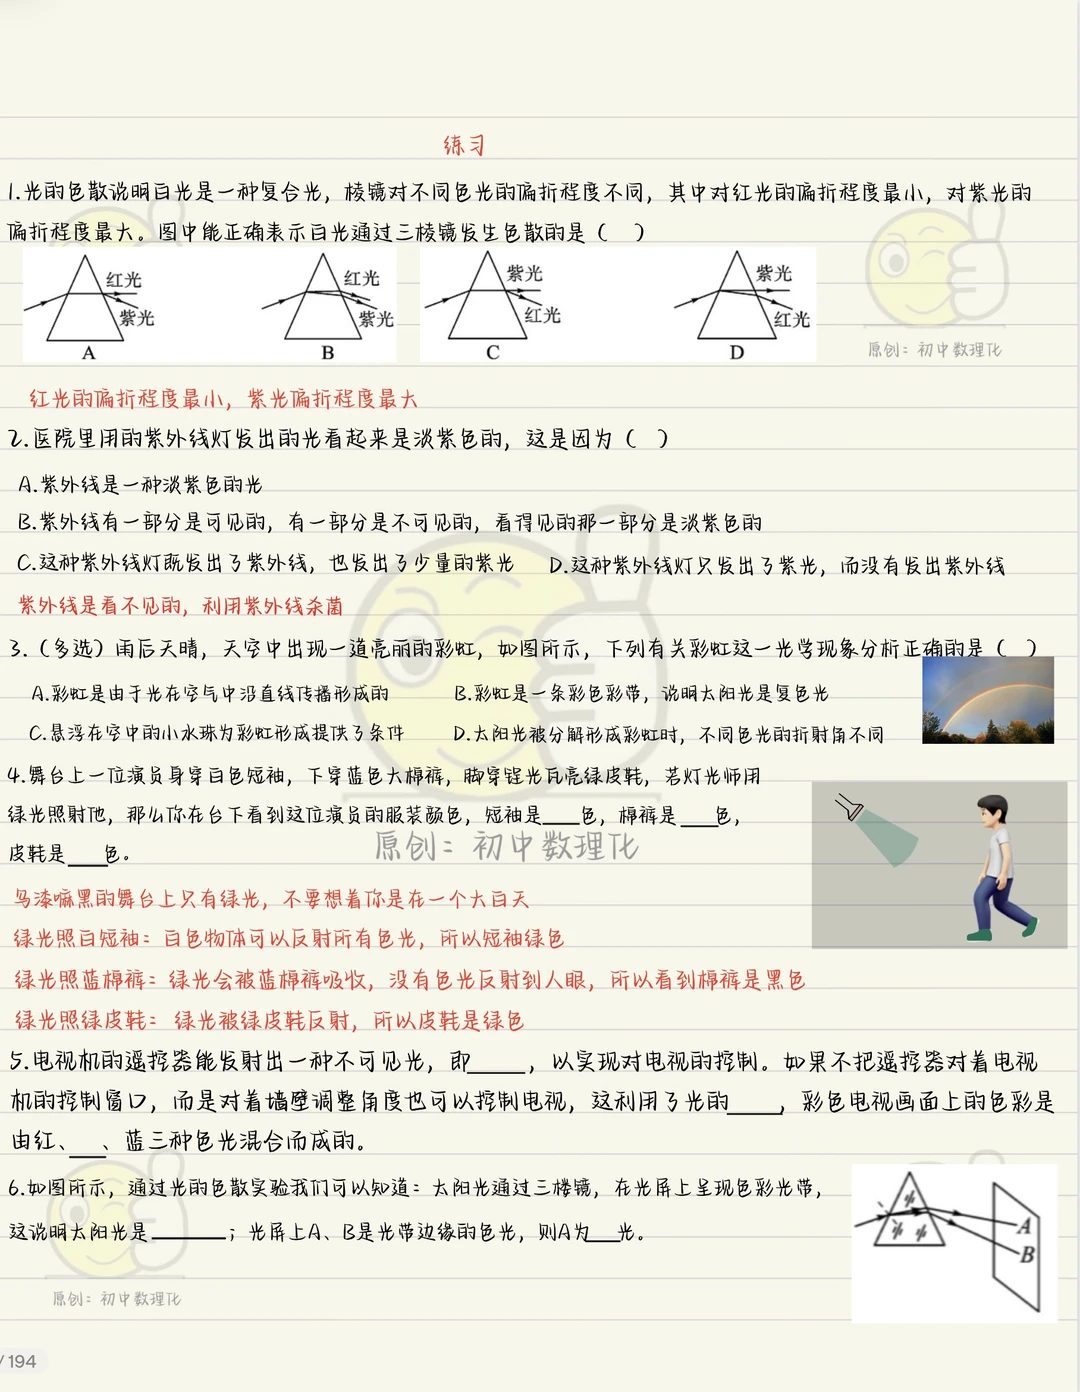 练习
1.光的色散说明白光是一种复合光，棱镜对不同色光的偏折程度不同，其中对红光的偏折程度最小，对紫光的
偏折程度最大。图中能正确表示白光通过三棱镜发生色散的是（　）
红光 紫光 A
红光 紫光 B
紫光 红光 C
紫光 红光 D
原创：初中数理化
红光的偏折程度最小，紫光偏折程度最大
2.医院里用的紫外线灯发出的光看起来是淡紫色的，这是因为（　）
A.紫外线是一种淡紫色的光
B.紫外线有一部分是可见的，有一部分是不可见的，看得见的那一部分是淡紫色的
C.这种紫外线灯既发出了紫外线，也发出了少量的紫光 D.这种紫外线灯只发出了紫光，而没有发出紫外线
紫外线是看不见的，利用紫外线杀菌
3.（多选）雨后天晴，天空中出现一道亮丽的彩虹，如图所示，下列有关彩虹这一光学现象分析正确的是（　）
A.彩虹是由于光在空气中沿直线传播形成的 B.彩虹是一条彩色彩带，说明太阳光是复色光
C.悬浮在空中的小水珠为彩虹形成提供了条件 D.太阳光被分解形成彩虹时，不同色光的折射角不同
4.舞台上一位演员身穿白色短袖，下穿蓝色大棉裤，脚穿锃光瓦亮绿皮鞋，若灯光师用
绿光照射他，那么你在台下看到这位演员的服装颜色，短袖是____色，棉裤是____色，
皮鞋是____色。
原创：初中数理化
乌漆嘛黑的舞台上只有绿光，不要想着你是在一个大白天
绿光照白短袖：白色物体可以反射所有色光，所以短袖绿色
绿光照蓝棉裤：绿光会被蓝棉裤吸收，没有色光反射到人眼，所以看到棉裤是黑色
绿光照绿皮鞋：绿光被绿皮鞋反射，所以皮鞋是绿色
5.电视机的遥控器能发射出一种不可见光，即_____，以实现对电视的控制。如果不把遥控器对着电视
机的控制窗口，而是对着墙壁调整角度也可以控制电视，这利用了光的_____，彩色电视画面上的色彩是
由红、___、蓝三种色光混合而成的。
6.如图所示，通过光的色散实验我们可以知道：太阳光通过三棱镜，在光屏上呈现色彩光带，
这说明太阳光是_______；光屏上A、B是光带边缘的色光，则A为___光。
A
B
原创：初中数理化
/ 194